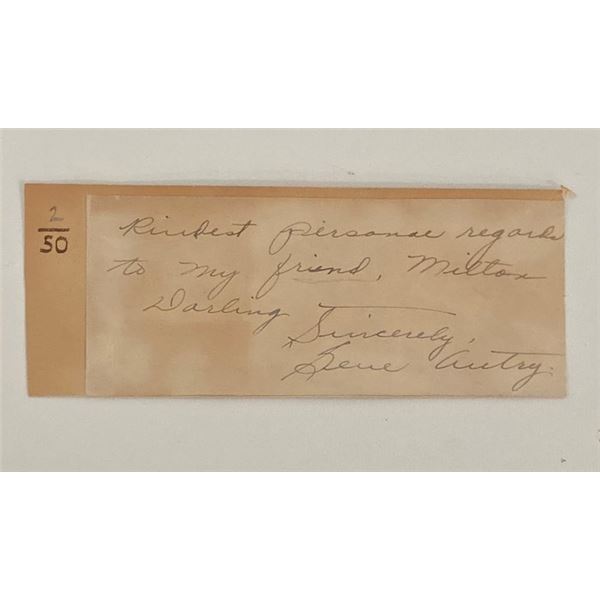 2
50
Kindest personal regards
to my friend, Milton
Darling
Sincerely,
Gene Autry.